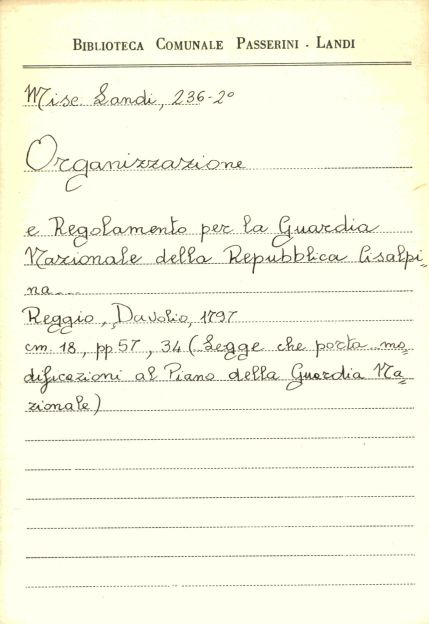 BIBLIOTECA COMUNALE PASSERINI - LANDI
Misc. Landi, 236-2º
Organizzazione
e Regolamento per la Guardia
Nazionale della Repubblica Cisalpi=
na...
Reggio, Davolio, 1797
cm. 18, pp 57, 34 (Legge che porta mo=
dificazioni al Piano della Guardia Na=
zionale)